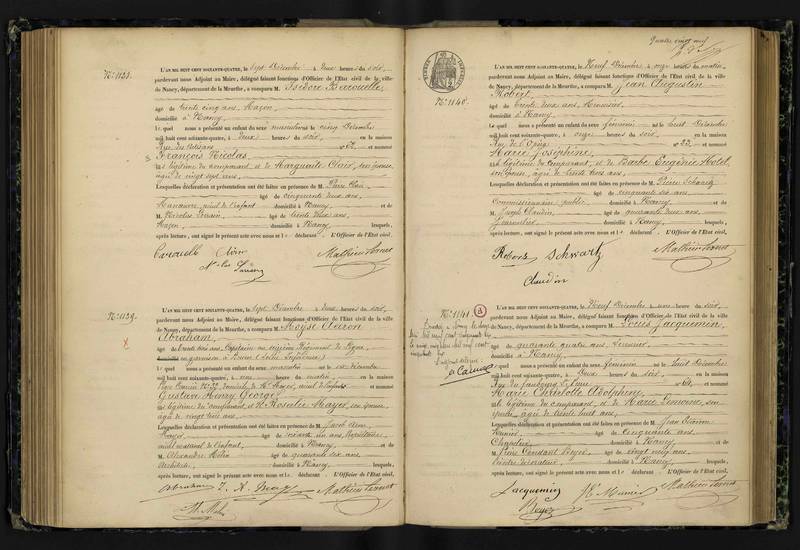 N° 1138.
L'AN MIL HUIT CENT SOIXANTE-QUATRE, le sept Décembre à deux heures du soir,
pardevant nous Adjoint au Maire, délégué faisant fonctions d'Officier de l'Etat civil de la ville
de Nancy, département de la Meurthe, a comparu M. Isidore
âgé de trente cinq ans, Maçon,
domicilié à Nancy
Lequel nous a présenté un enfant du sexe masculin né le cinq Décembre
mil huit cent soixante-quatre, à deux heures du soir, en la maison
Rue des Artisans n° 52 et nommé
François Nicolas,
fils légitime du comparant, et de Marguerite Clair, son épouse,
âgée de vingt sept ans,
Lesquelles déclaration et présentation ont été faites en présence de M. Pierre Clair,
âgé de cinquante deux ans,
Manœuvre, aïeul de l'enfant domicilié à Nancy et de
M. Nicolas âgé de trente deux ans,
Maçon, domicilié à Nancy lesquels,
après lecture, ont signé le présent acte avec nous et le déclarant. L'Officier de l'Etat civil,
Clair Mathieu
N° 1139.
L'AN MIL HUIT CENT SOIXANTE-QUATRE, le sept Décembre à deux heures du soir,
pardevant nous Adjoint au Maire, délégué faisant fonctions d'Officier de l'Etat civil de la ville
de Nancy, département de la Meurthe, a comparu M. Moÿse Aaron
Abraham,
âgé de trente trois ans, Capitaine au Régiment de ligne,
domicilié en garnison à (Seine Inférieure)
Lequel nous a présenté un enfant du sexe masculin né le six Décembre
mil huit cent soixante-quatre, à une heure du matin, en la maison
aïeul de l'enfant et nommé
Gustave Henry George,
fils légitime du comparant, et de Rosalie Mayer, son épouse,
âgée de vingt trois ans,
Lesquelles déclaration et présentation ont été faites en présence de M. Jacob Aron
Mayer âgé de soixante un ans,
aïeul maternel de l'enfant, domicilié à Nancy et de
M. Alexandre Mélin âgé de quarante six ans,
Architecte, domicilié à Nancy lesquels,
après lecture, ont signé le présent acte avec nous et le déclarant. L'Officier de l'Etat civil,
Abraham J. A. Mayer Mathieu
Quatre vingt neuf
N° 1140.
L'AN MIL HUIT CENT SOIXANTE-QUATRE, le Neuf Décembre à onze heures du matin,
pardevant nous Adjoint au Maire, délégué faisant fonctions d'Officier de l'Etat civil de la ville
de Nancy, département de la Meurthe, a comparu M. Jean Augustin
Robert,
âgé de trente deux ans, Menuisier,
domicilié à Nancy
Lequel nous a présenté un enfant du sexe féminin né le huit Décembre
mil huit cent soixante-quatre, à onze heures du soir, en la maison
Rue de n° 22 et nommé
Marie Joséphine,
fille légitime du comparant, et de Barbe Eugénie
son épouse, âgée de trente trois ans,
Lesquelles déclaration et présentation ont été faites en présence de M. Pierre Schwartz
âgé de cinquante six ans,
Commissionnaire public domicilié à Nancy et de
M. Joseph Claudin, âgé de quarante deux ans,
Journalier, domicilié à Nancy lesquels,
après lecture, ont signé le présent acte avec nous et le déclarant. L'Officier de l'Etat civil,
Robert Schwartz Mathieu
Claudin
N° 1141.
L'AN MIL HUIT CENT SOIXANTE-QUATRE, le Neuf Décembre à une heure du soir,
pardevant nous Adjoint au Maire, délégué faisant fonctions d'Officier de l'Etat civil de la ville
de Nancy, département de la Meurthe, a comparu M. Louis Jacquemin,
âgé de quarante quatre ans,
domicilié à Nancy
Lequel nous a présenté un enfant du sexe féminin né le huit Décembre
mil huit cent soixante-quatre, à deux heures du soir, en la maison
Rue du faubourg n° 64 et nommé
Marie Christelle Adolphine,
fille légitime du comparant, et de Marie son
épouse, âgée de trente huit ans,
Lesquelles déclaration et présentation ont été faites en présence de M. Jean
âgé de cinquante ans,
domicilié à Nancy et de
M. âgé de vingt neuf ans,
domicilié à Nancy lesquels,
après lecture, ont signé le présent acte avec nous et le déclarant. L'Officier de l'Etat civil,
Jacquemin Mathieu